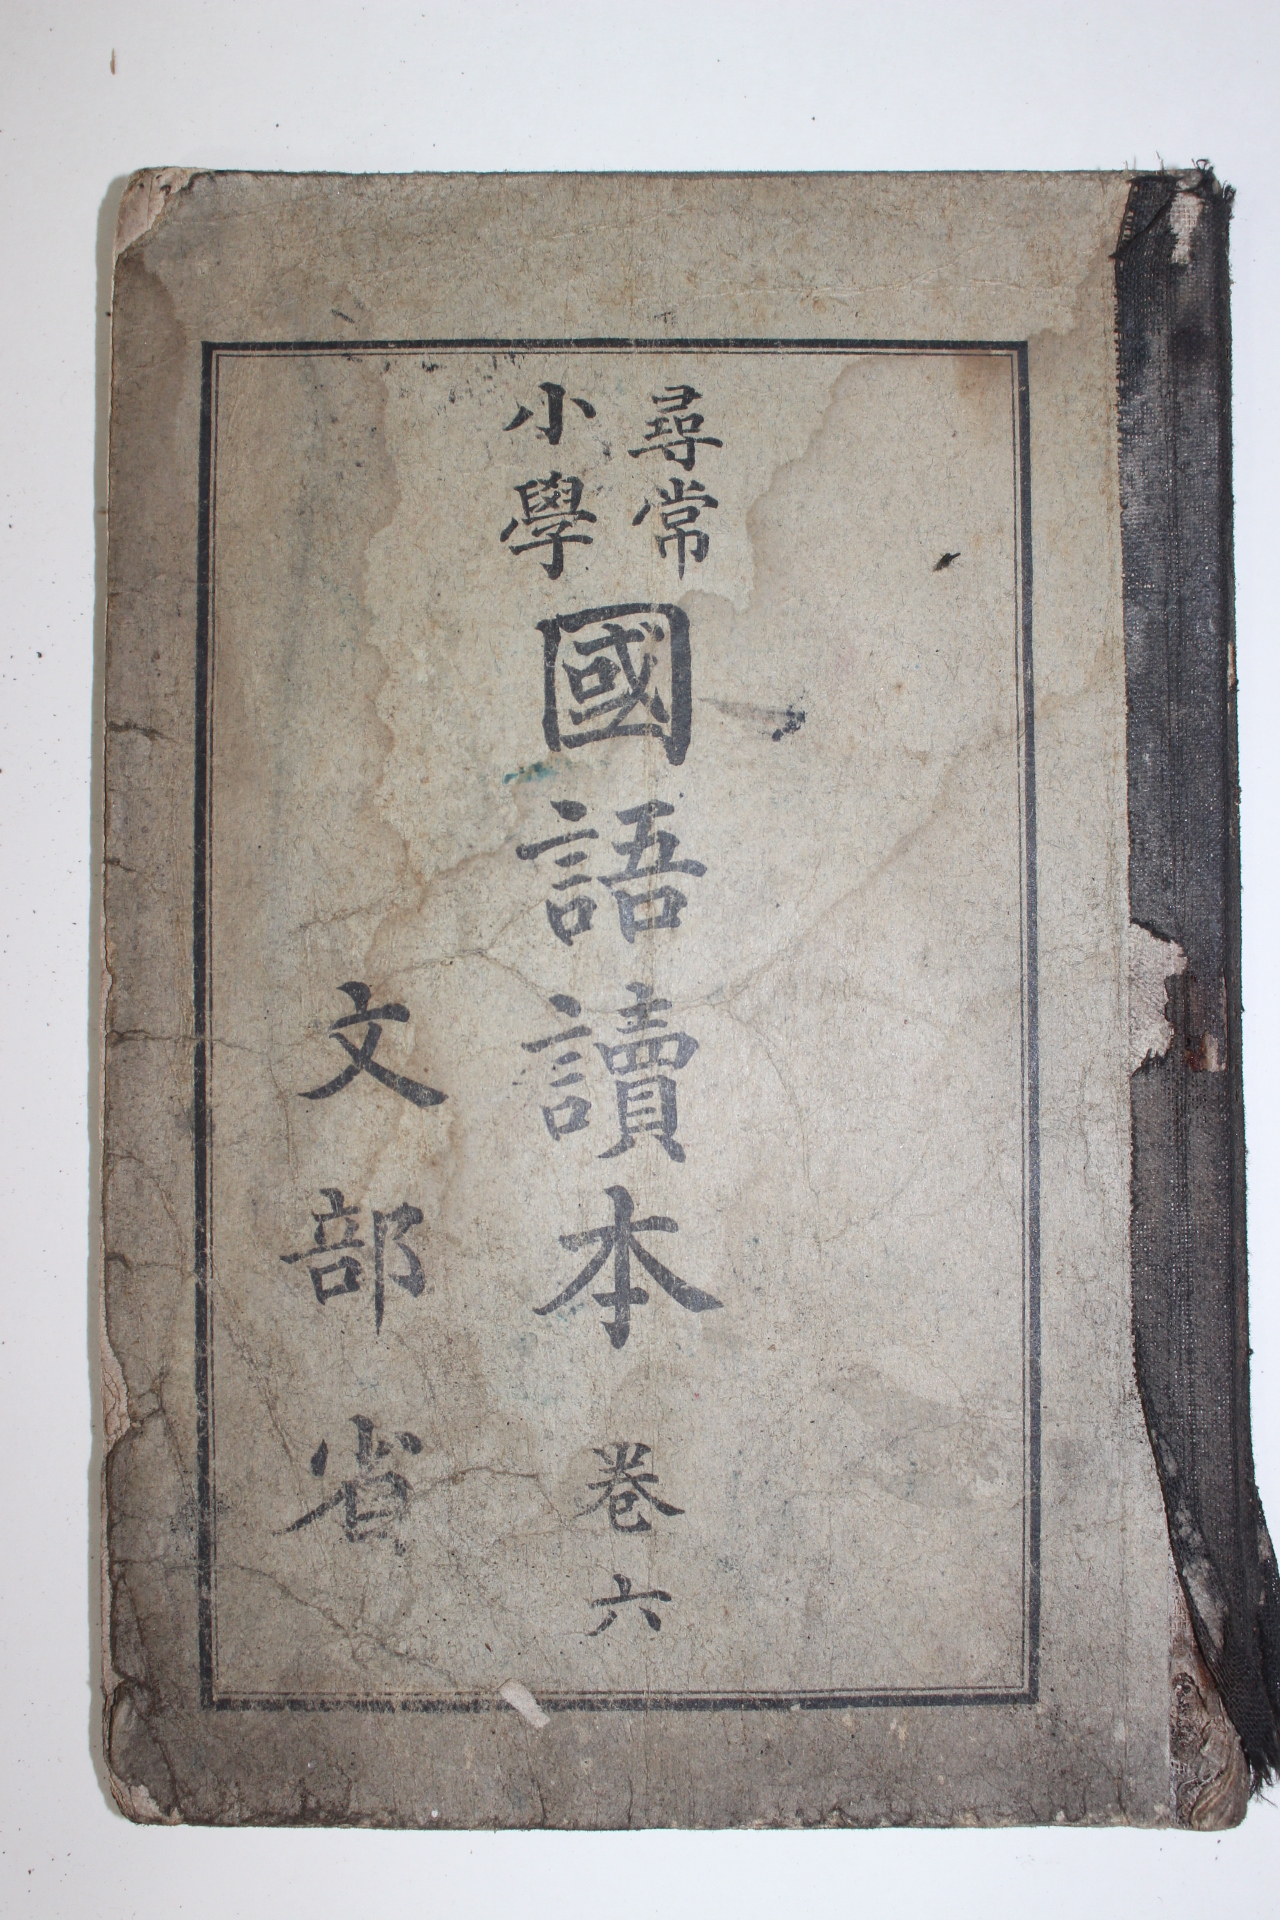 尋常
小學
國語讀本 巻六
文部省